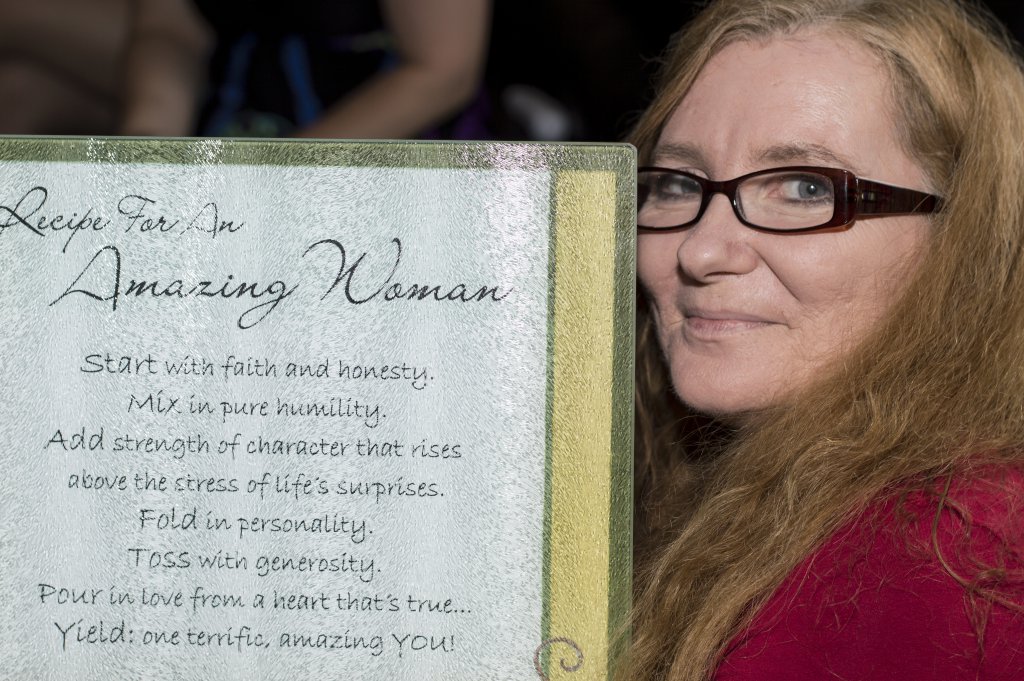 Recipe For An
Amazing Woman
Start with faith and honesty.
Mix in pure humility.
Add strength of character that rises
above the stress of life's surprises.
Fold in personality.
Toss with generosity.
Pour in love from a heart that's true...
Yield: one terrific, amazing YOU!